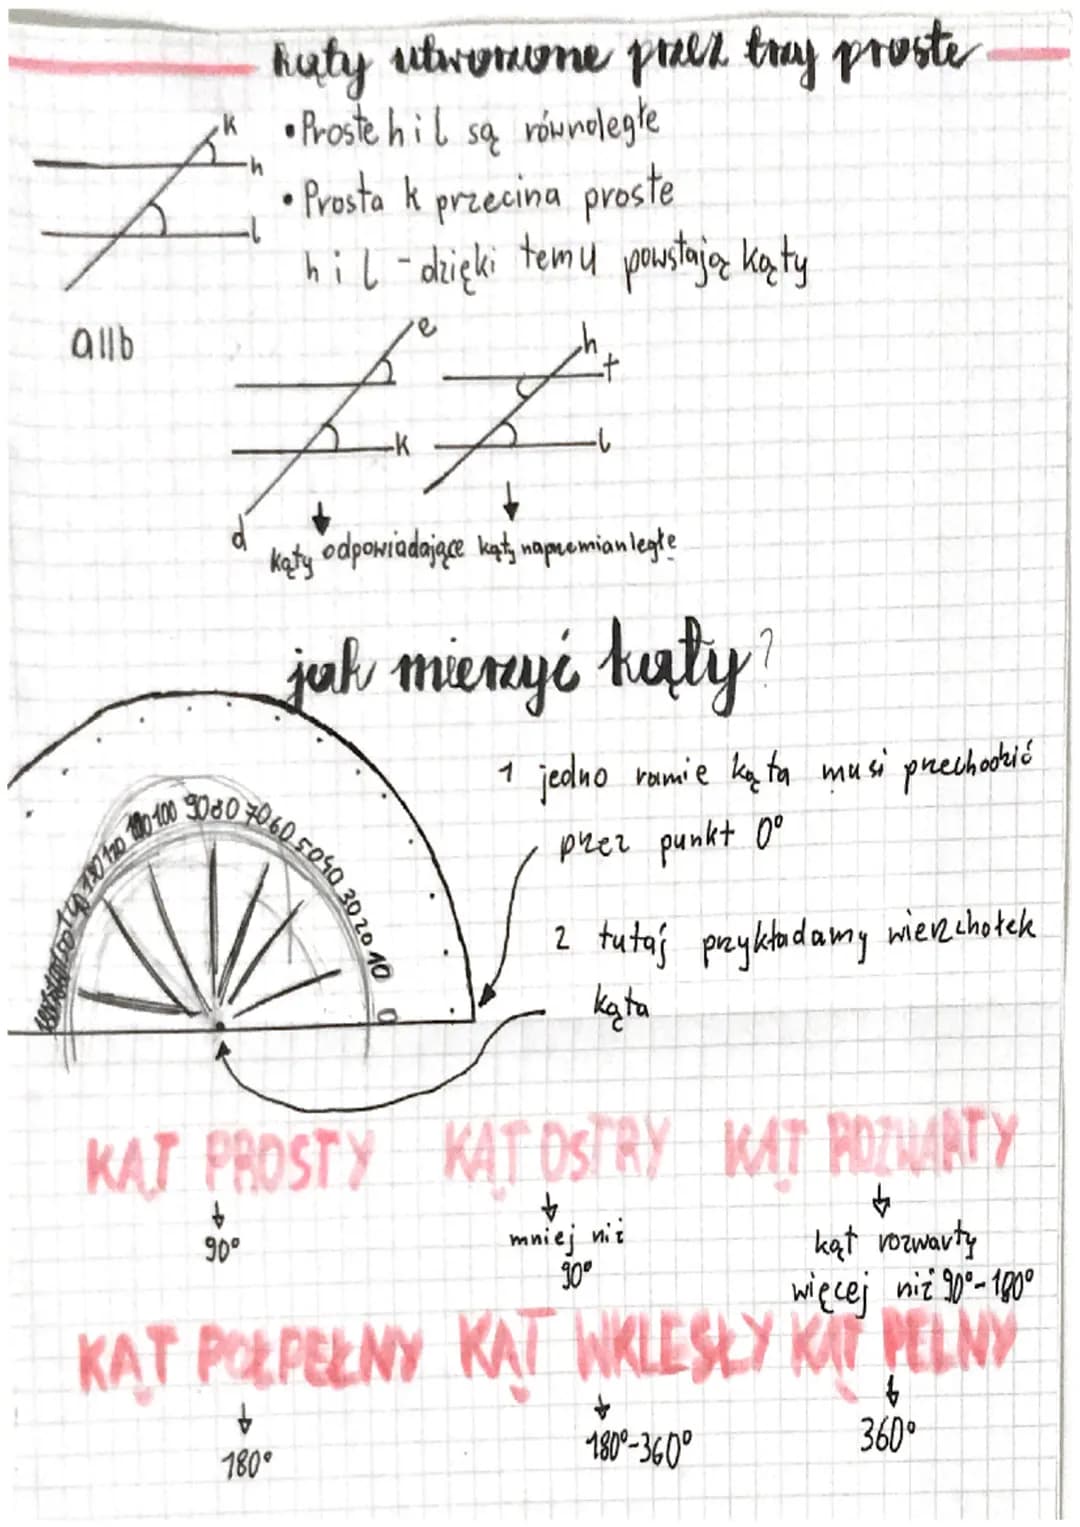 kąty utworzone przez trzy proste
k
• Proste h i l są równoległe
h
• Prosta k przecina proste
l
h i l - dzięki temu powstają kąty
a||b
e
h
t
k
l
d
kąty odpowiadające kąty napremianległe
jak mierzyć kąty?
1 jedno ramie kąta musi przechodzić
przez punkt 0°
130 120 110 100 90 80 70 60 50 40 30 20 10 0
2 tutaj przykładamy wierzchołek
kąta
KĄT PROSTY KĄT OSTRY KĄT ROZWARTY
90°
mniej niż
90°
kąt rozwarty
więcej niż 90°-180°
KĄT PÓŁPEŁNY KĄT WKLĘSŁY KĄT PEŁNY
180°
180°-360°
360°